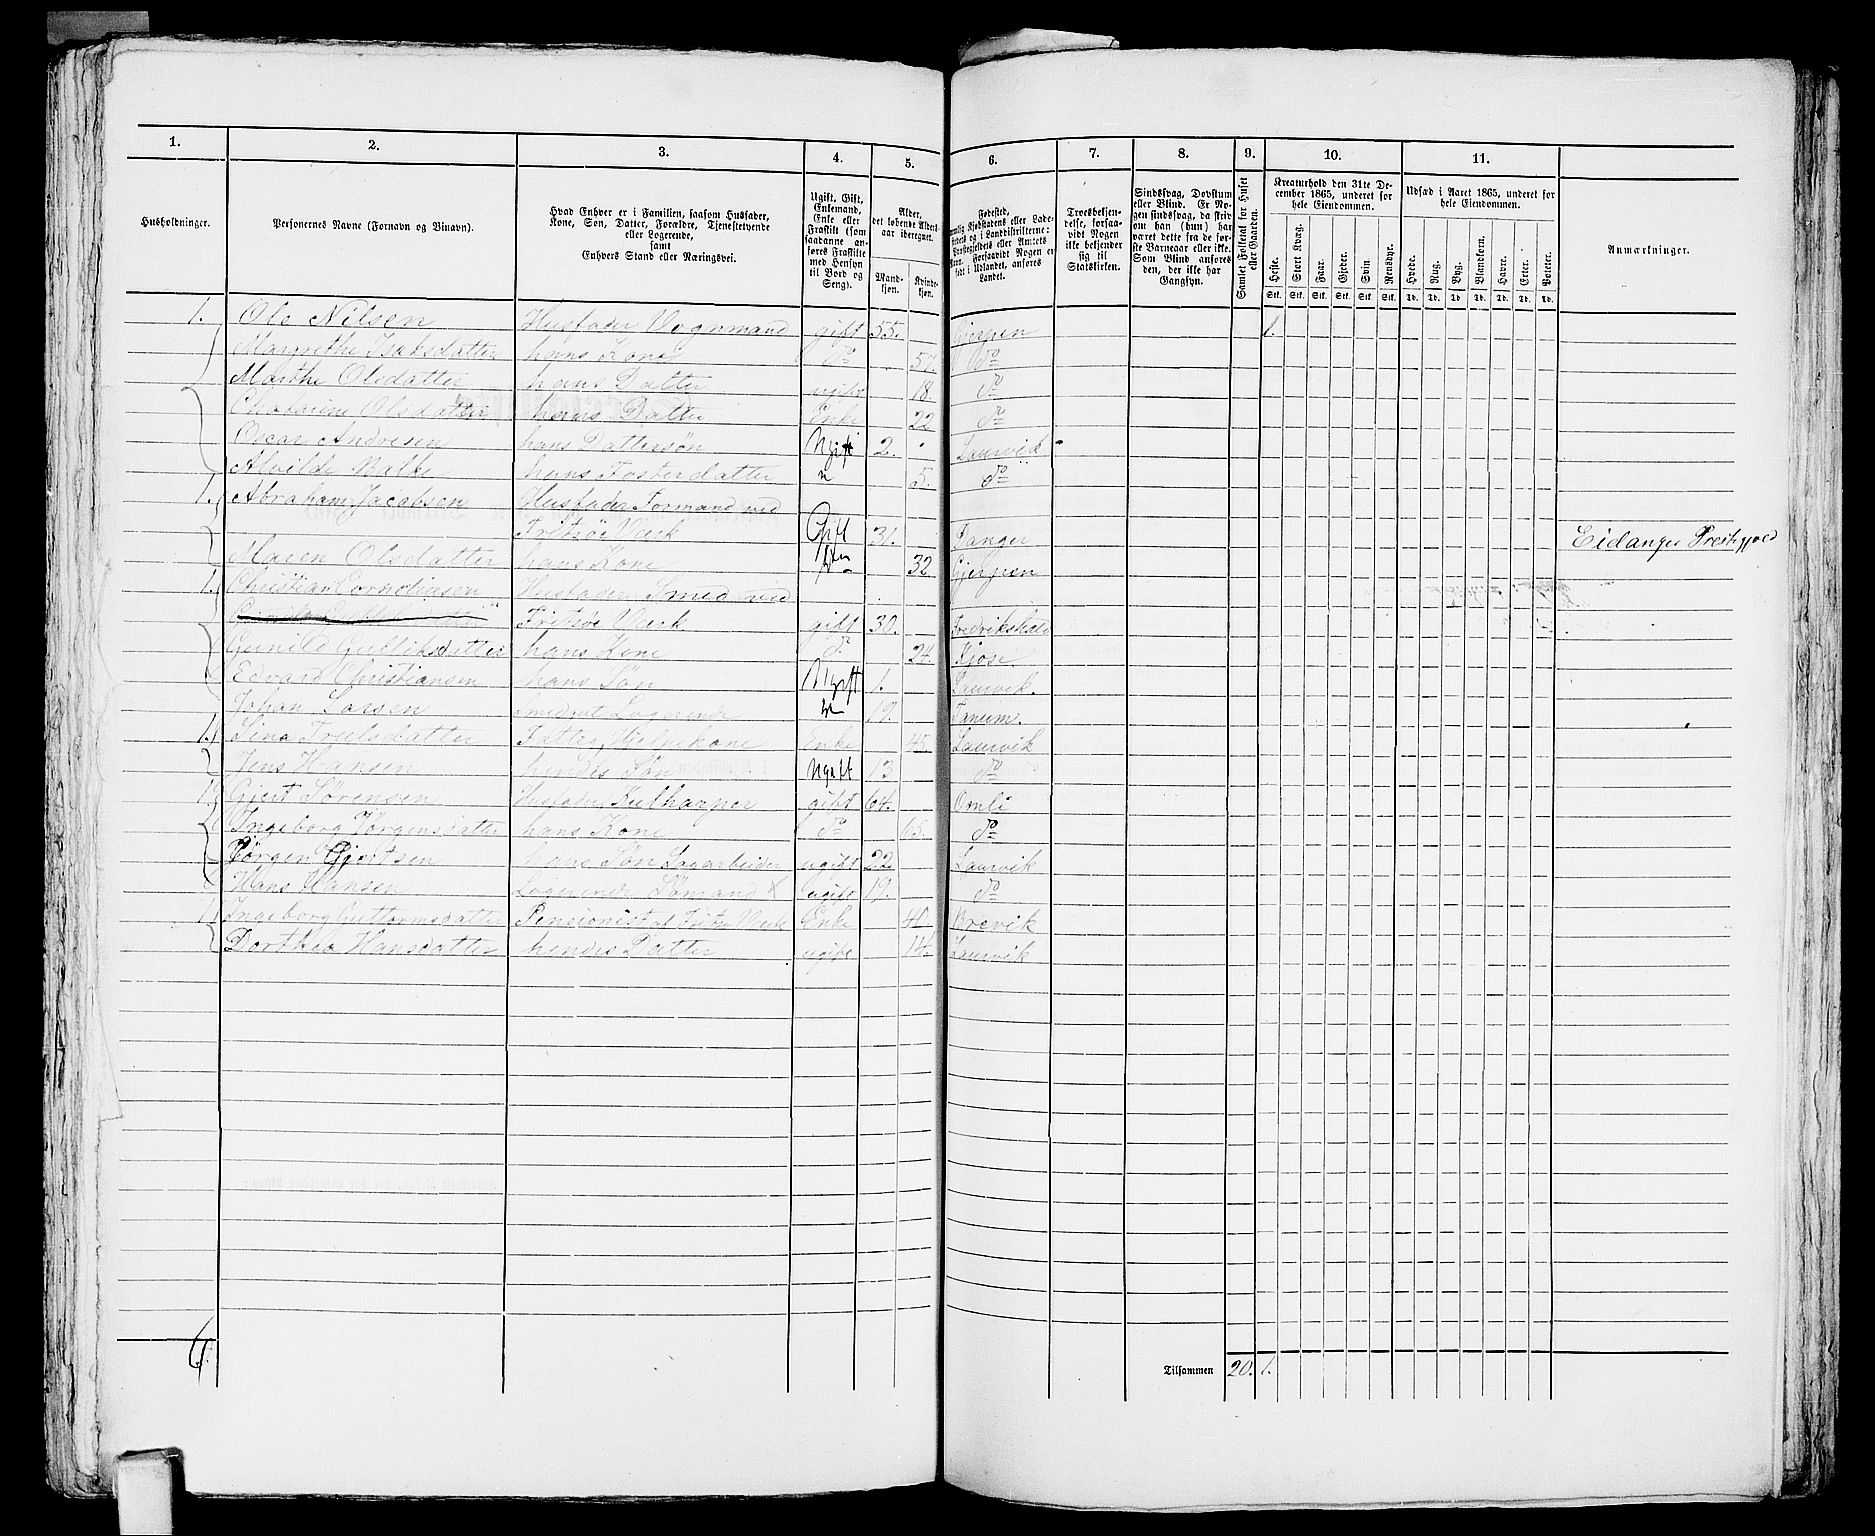 1. 2. 3. 4. 5. 6. 7. 8. 9. 10. 11.
Husholdninger.
Personernes Navne (Fornavn og Binavn).
Hvad Enhver er i Familien, saasom Husfader, Kone, Søn, Datter, Forældre, Tjenestetyende eller Logerende, samt Enhvers Stand eller Næringsvei.
Ugift, Gift, Enkemand, Enke eller Fraskilt (som saadanne anføres Fraskilte med Hensyn til Bord og Seng).
Alder, det løbende Alders-aar iberegnet.
Mand-kjøn. Kvinde-kjøn.
Fødested,
Troesbekjendelse, forsaavidt Nogen ikke bekjender sig til Statskirken.
Sindssvag, Døvstum eller Blind. Er Nogen sindssvag, da skriv om han (hun) har været dette fra de første Barneaar eller ikke. Som Blind anføres den, der ikke har Gangsyn.
Samlet Folketal for Huset eller Gaarden.
Kreaturhold den 31te December 1865, underet for hele Eiendommen.
Udsæd i Aaret 1865, underet for hele Eiendommen.
Anmærkninger.
Heste. Stort Kvæg. Faar. Gjeder. Svin. Rensdyr. Hvede. Rug. Byg. Blandkorn. Havre. Erter. Poteter.
Stk. Stk. Stk. Stk. Stk. Stk. Td. Td. Td. Td. Td. Td. Td.
1. Ole Nilsen Husfader Vognmand gift 55. Gjerpen 1.
Margrethe Isaksdatter hans Kone do 57. do
Marthe Olsdatter hans Datter ugift 18. do
Olsdatter hans Datter Enke 22 do
Oscar Andresen hans Dattersøn Ugift 2. Laurvik
Alvilde Balke hans Fosterdatter 5. do
1. Abraham Jacobsen Husfader Formand ved
Fritsøe Værk Gift 31. Langer Eidanger
Maren Olsdatter hans Kone 32 Gjerpen
1. Christian Corneliusen Husfader Smed ved
Fritsøe Værk gift 30. Fredrikshald
Gunild Gulliksdatter hans Kone do 24. Kjose
Edvard Christiansen hans Søn Ugift 1. Laurvik.
Johan Larsen Logerende 19. Tanum.
1. Lina Trulsdatter Enke 45. Laurvik
Jens Hansen hendes Søn Ugift 13 do
1. Gjert Sørensen Husfader gift 64. Omli
Ingeborg Jørgensdatter hans Kone do 65. do
Jørgen Gjertsen hans Søn Sagarbeider ugift 22 Laurvik
Hans Hansen Logerende Sømand X ugift 19. do
1 Ingeborg Guttormsdatter Pensionist af Værk Enke 40 Brevik
Dorthea Hansdatter hendes Datter ugift 14. Laurvik
6.
Tilsammen 20. 1.